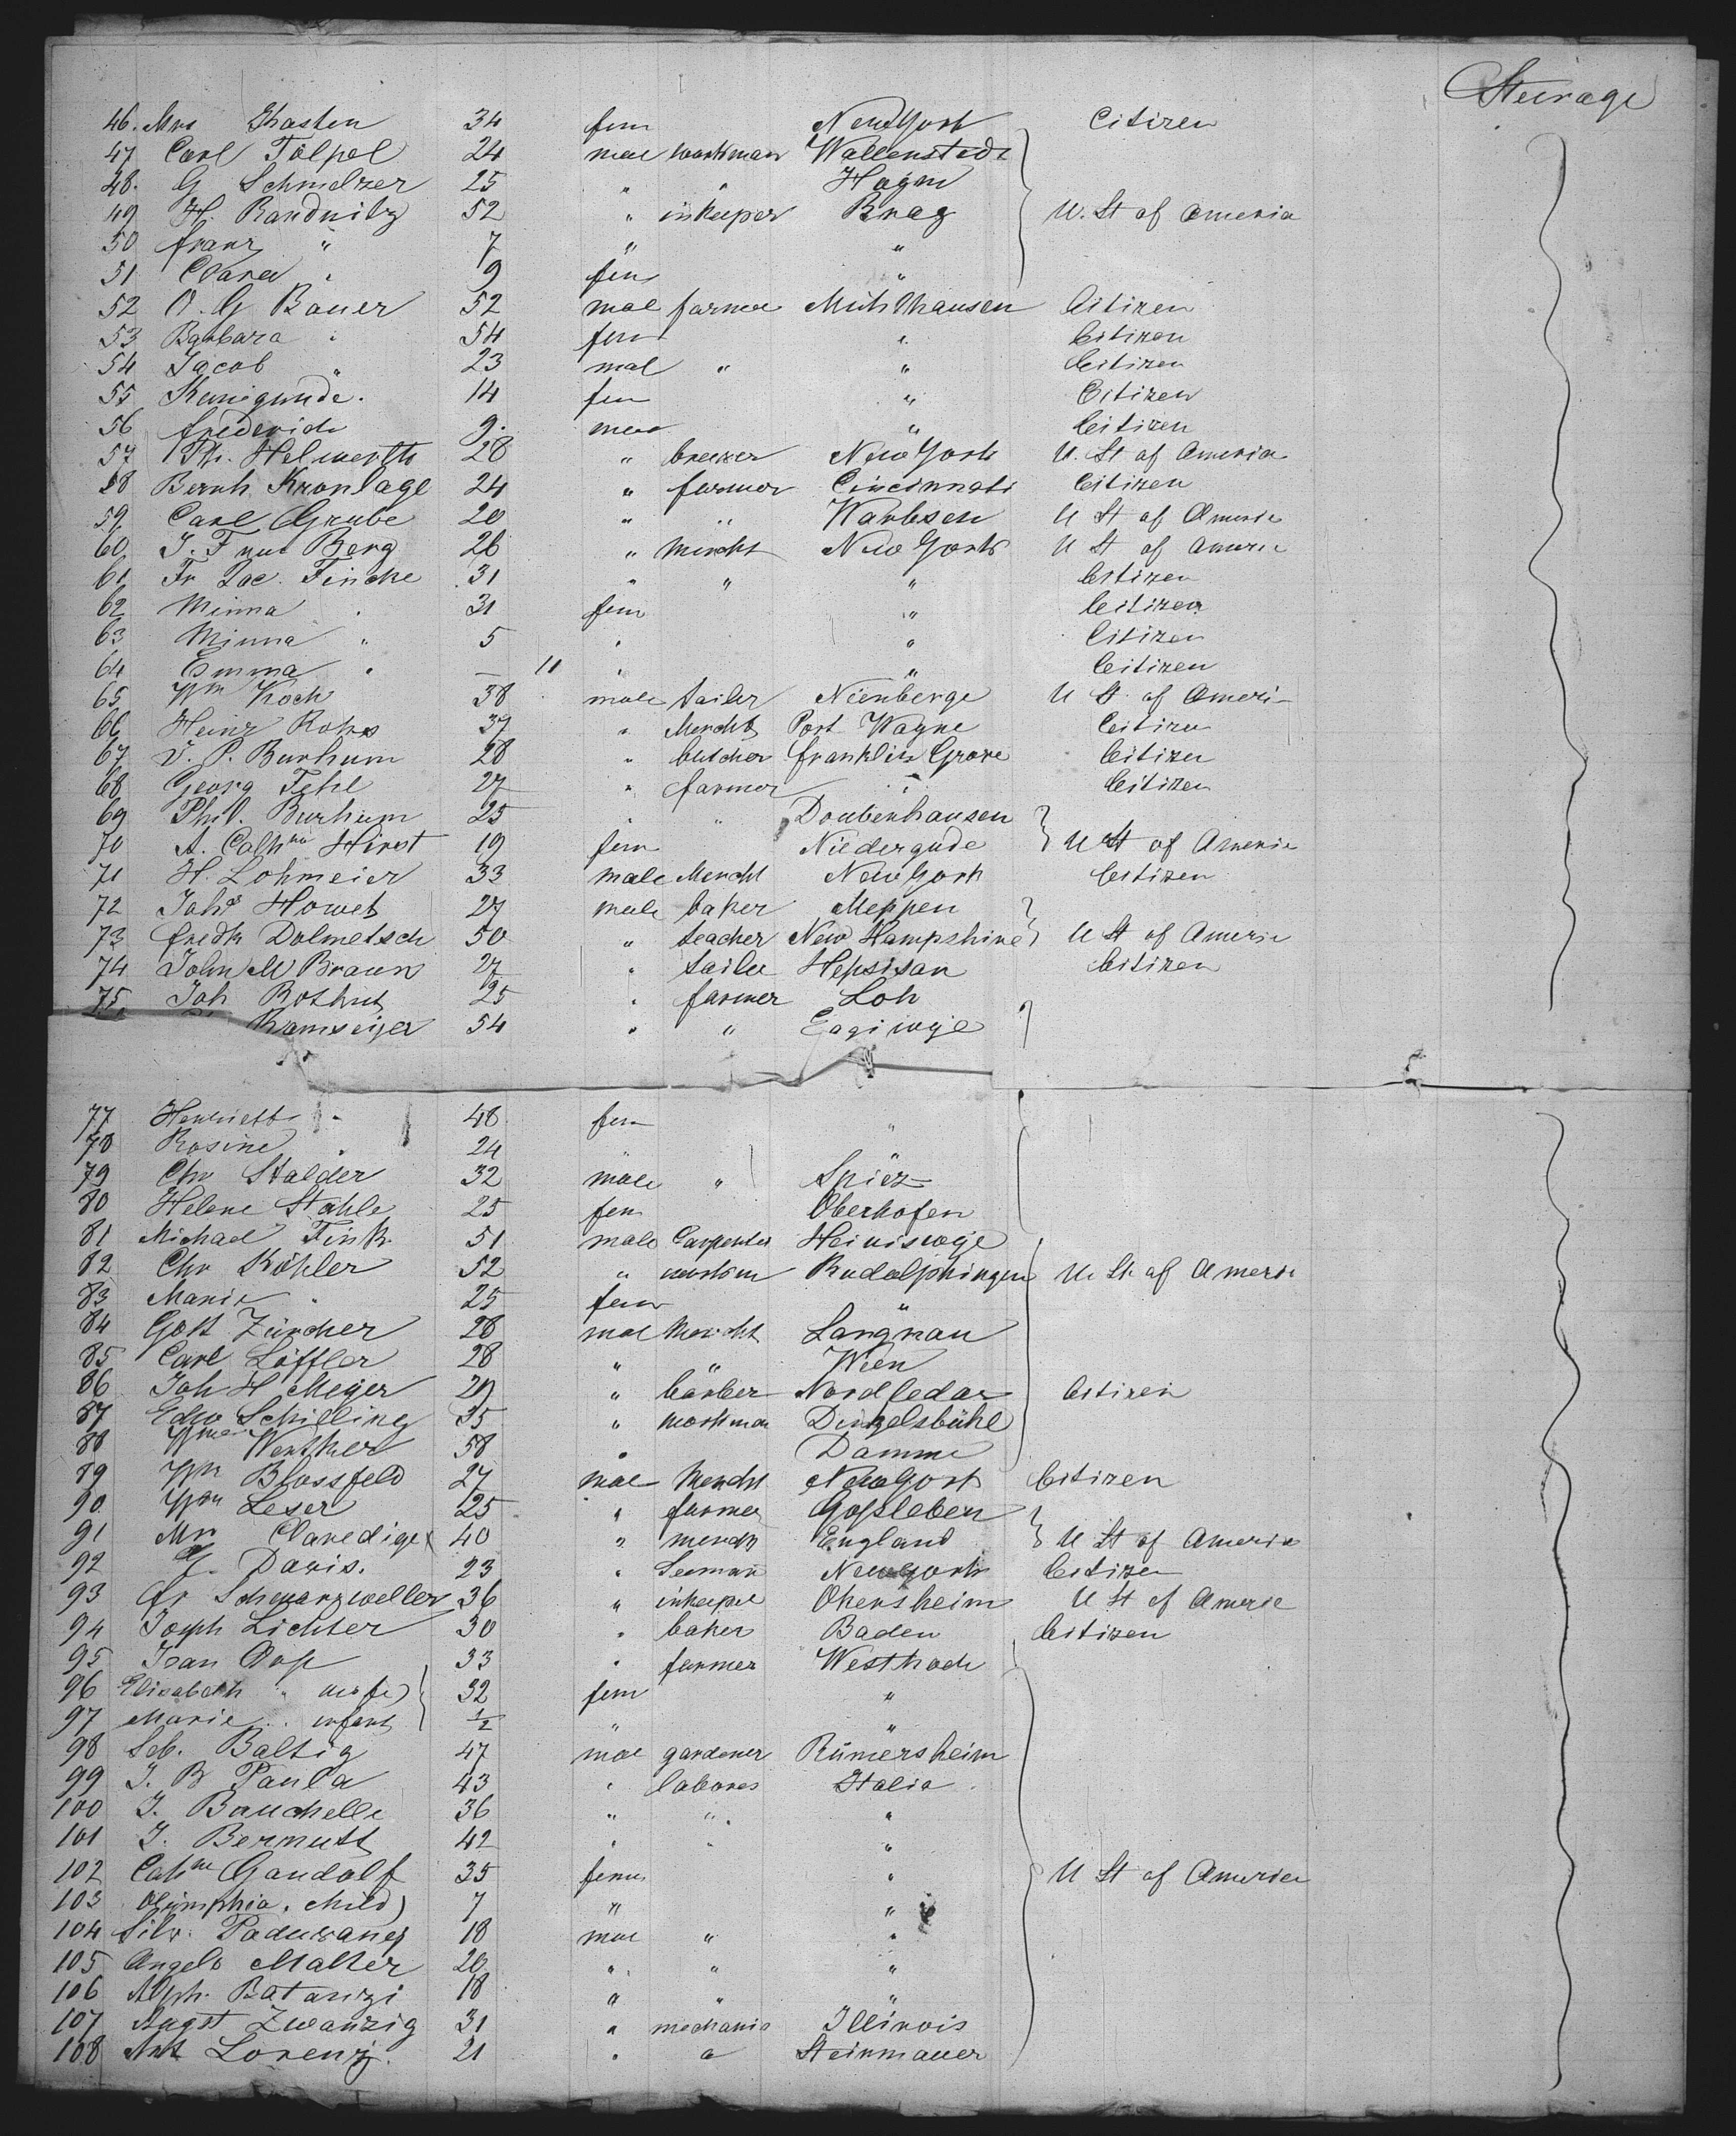 Steerage
46. Mrs Thasten 34 fem New York Citizen
47 Carl Tölpel 24 mal workman Wallenstedt
48. G Schmelzer 25 " " Hagen
49 H. Raudnitz 52 " inkeeper Prag U. St of America
50 Franz " 7 " "
51 Clara " 9 fem "
52 A. G Bauer 52 mal farmer Mühlhausen Citizen
53 Barbara " 54 fem " Citizen
54 Jacob " 23 mal " " Citizen
55 Kunigunde. 14 fem " Citizen
56 Frederich 9. mal " Citizen
57 Ph. Helmerth 28 " brewer New York U. St of America
58 Bernh. Kronlage 24 " farmer Cincinnati Citizen
59 Carl Grube 20 " " Warbsen U St of Americ
60 J. F Berg 26 " Mercht New York U St of Americ
61 Fr Jac. Fincke 31 " " " Citizen
62 Minna " 31 fem " Citizen
63 Minna " 5 " " Citizen
64 Emma " — 11 " " Citizen
65 Wm Koch 38 male tailer Nienberge U St of Ameri
66 Heinr Rohrs 37 " Mercht Fort Wayne Citizen
67 V. P. Burhum 28 " butcher Franklin Grove Citizen
68 Georg Fehl 27 " farmer " Citizen
69 Phil. Burhum 25 " " Doubenhausen
70 A. Cathne Hirst 19 fem Niedergude U St of Americ
71 H. Lohmeier 33 male Mercht New York Citizen
72 Johs Howet 27 male baker Meppen
73 Fredk Dolmetsch 50 " teacher New Hampshire U St of Americ
74 John M Braun 27 " tailer Hepsisan Citizen
75. Joh Rothut 25 " farmer Loh
Ramseyer 54 " " Eggiwyl
77 Henriett " 48 fem "
78 Rosine " 24
79 Chr Stalder 32 male " Spiez
80 Helene Stahle 25 fem Oberhofen
81 Michael Fink 51 male Carpenter
82 Chr Köhler 52 " workm Rudolphingen U. St of Americ
83 Marie " 25 fem "
84 Gott Zürcher 28 mal Mercht Langnau
85 Carl Löffler 28 " " Wien
86 Joh H Meyer 29 " barber Nordledar Citizen
87 Edw Schilling 35 " workman Dinzelsbühl
88 Werther 58 " Damme
89 Wm Blossfeld 27 mal Mercht New York Citizen
90 Wm Leser 25 " farmer Gossleben
91 Mr Claredige 40 " mercht England U St of America
92 Davis. 23 " Seeman New York Citizen
93 Fr Schwarzweller 36 " inkeeper Okensheim U St of Americ
94 Joseph Lichter 30 " baker Baden Citizen
95 Ivan 33 " farmer Westhode
96 Elisabeth " wife 32 fem "
97 Marie " infant ½ " "
98 Seb. Baltig 47 mal gardener Rümersheim
99 J. B Paula 43 " labores Italia
100 J. Bauchelle 36 " " "
101 J. Bermutt 42 " " "
102 Cathne Gandolf 35 fem " U St of America
103 Olimphia, child 7 " "
104 Silv. 18 mal " "
105 Angelo Malter 20 " " "
106 Alph. Batanzi 18 " " "
107 August Zwanzig 31 " mechanic Illinois
108 Ant Lorenz. 21 " " Steinmauer